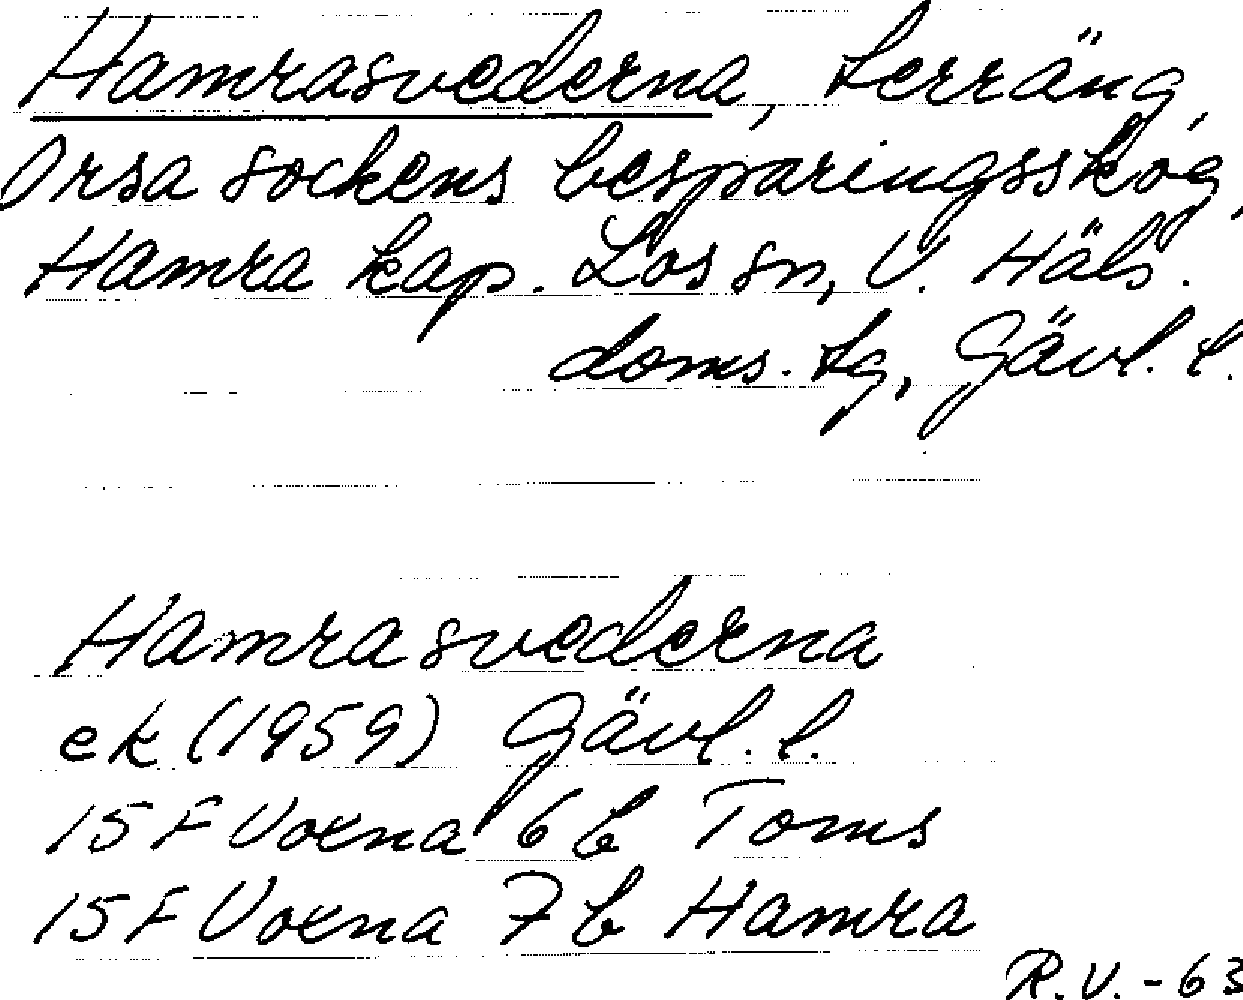 Hamrasvederna, terräng,
Orsa sockens besparingsskog,
Hamra kap. Los sn, V. Häls.
doms. tg, Gävl. l.
Hamrasvederna
ek (1959) Gävl. l.
15 F Voxna 6 b Toms
15 F Voxna 7 b Hamra
R.V. - 63